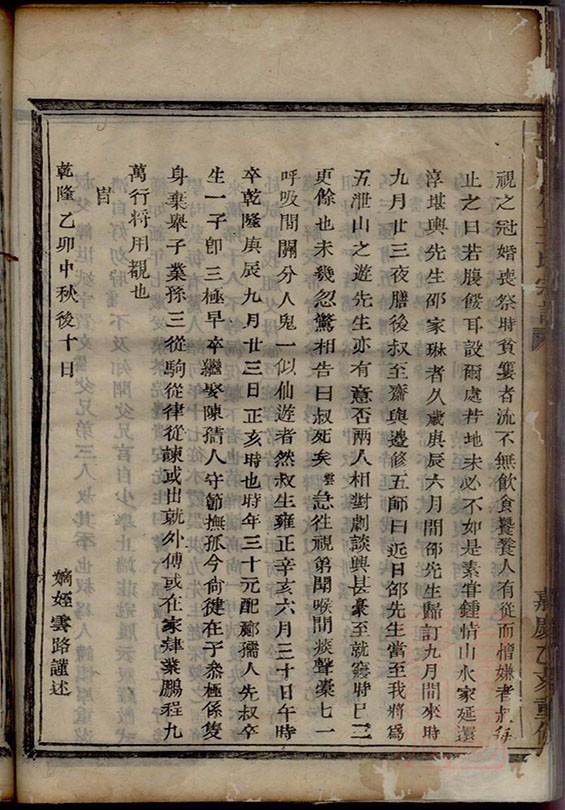 視之冠婚喪祭時貧窶者流不無飲食饕餮人有從而憎嫌者叔每
止之曰若腹餒耳設爾處若地未必不如是素甞鍾情山水家延還
淳堪輿先生邵家琳者久歲庚辰六月間邵先生歸訂九月間來時
九月廿三夜膳後叔至齋與邉修五師曰近日邵先生當至我將為
五泄山之遊先生亦有意否兩人相對劇談興甚豪至就寢時已二
更餘也未幾忽驚相告曰叔死矣雲急徃視弟聞喉間痰聲橐七一
呼吸間關分人鬼一似仙遊者然叔生雍正辛亥六月三十日午時
卒乾隆庚辰九月廿三日正亥時也時年三十元配酈孺人先叔卒
生一子卽三極早卒繼娶陳孺人守節撫孤今尚徤在于叅極係隻
身棄舉子業孫三從駒從律從諫或出就外傅或在家肄業鵬程九
萬行将用覩也
旹
乾隆乙卯中秋後十日
嫡姪雲路謹述
嘉慶乙亥重修